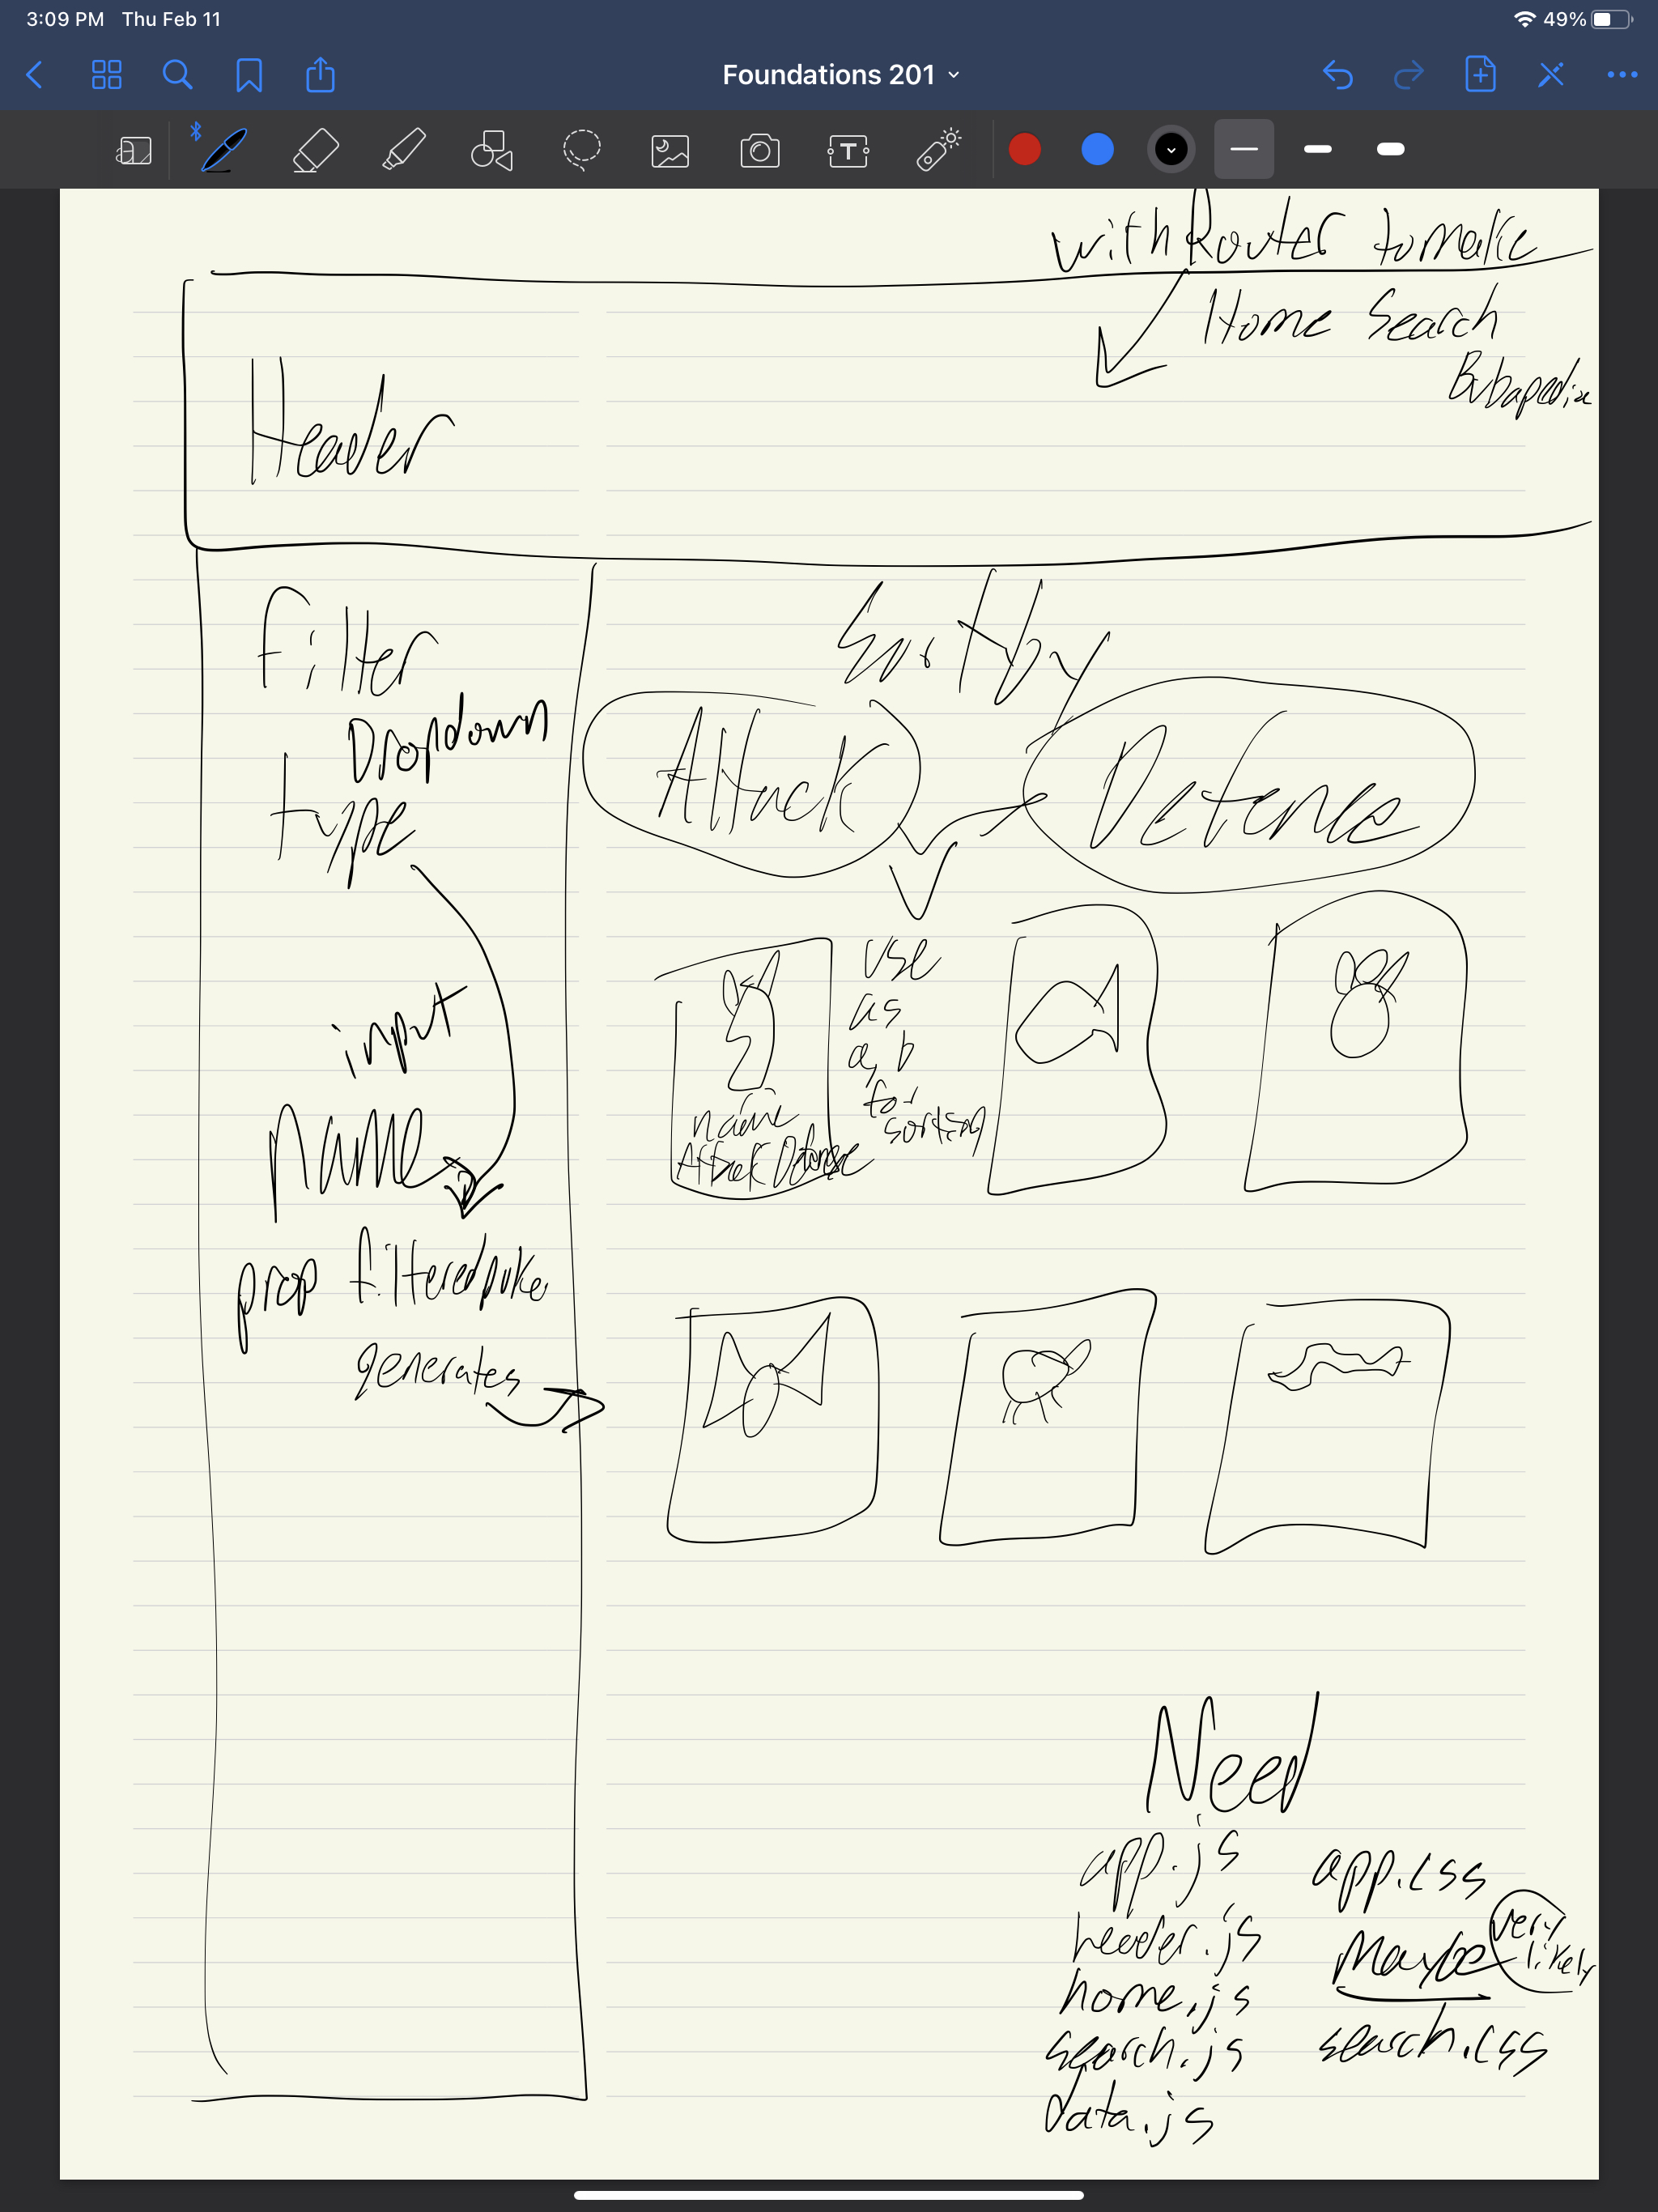 3:09 PM Thu Feb 11
49%
Foundations 201
T
withRouter to make
Home Search
Header
Filter
Dropdown
type
input
name
prop filteredpoke
generates
Sort by
Attack
Defense
use
as
a, b
for
sorting
name
Attack Defense
Need
app.js
header.js
home.js
search.js
data.js
app.css
Maybe
very
likely
search.css